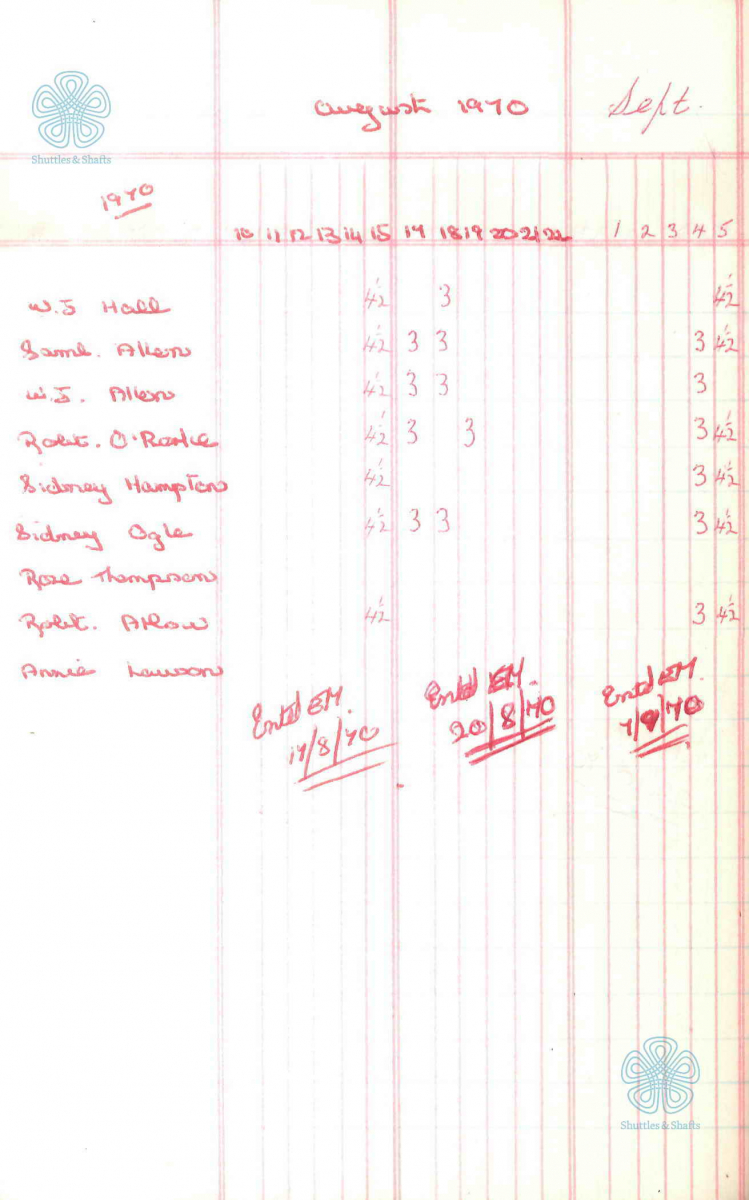 Shuttles & Shafts
August 1970 Sept.
1970
10 11 12 13 14 15 17 18 19 20 21 22 1 2 3 4 5
W.J Hall 4½ 3 4½
Saml. Allen 4½ 3 3 3 4½
W.J. Allen 4½ 3 3 3
Robt. O'Rorke 4½ 3 3 3 4½
Sidney Hampton 4½ 3 4½
Sidney Ogle 4½ 3 3 3 4½
Rose Thompson
Robt. 4½ 3 4½
Annie Lawson
Entd EM. Entd EM. Entd EM.
17/8/70 20/8/70 7/9/70
Shuttles & Shafts